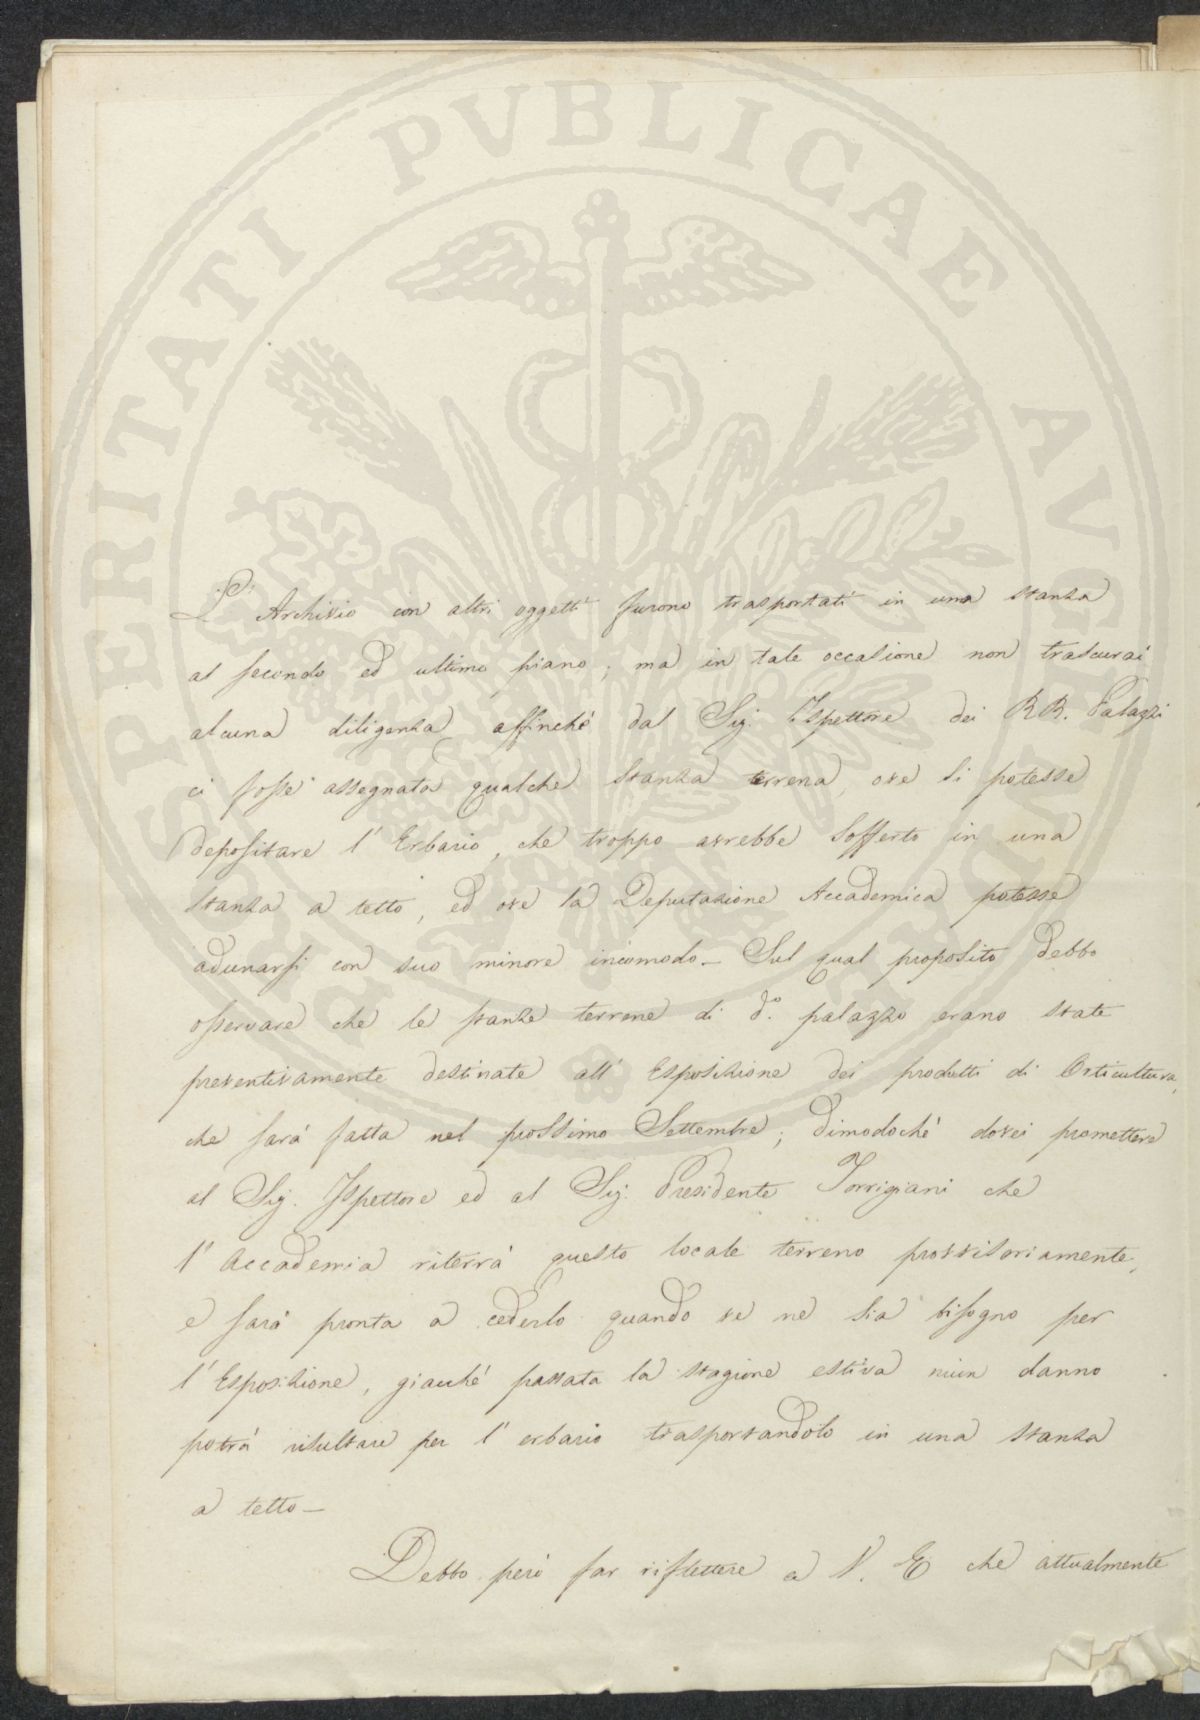 PROSPERITATI PVBLICAE AVGENDAE
L' Archivio con altri oggetti furono trasportati in una stanza
al secondo ed ultimo piano; ma in tale occasione non trascurai
alcuna diligenza affinchè dal Sig. Ispettore dei RR. Palazzi
ci fosse assegnata qualche stanza terrena, ove si potesse
depositare l' Erbario, che troppo avrebbe sofferto in una
stanza a tetto, ed ove la Deputazione Accademica potesse
adunarsi con suo minore incomodo_ Sul qual proposito debbo
osservare che le stanze terrene di d.o palazzo erano state
preventivamente destinate all' Esposizione dei prodotti di Orticultura,
che sarà fatta nel prossimo Settembre; dimodochè dovei promettere
al Sig. Ispettore ed al Sig. Presidente Torrigiani che
l' Accademia riterrà questo locale terreno provvisoriamente,
e sarà pronta a cederlo quando ve ne sia bisogno per
l' Esposizione, giacchè passata la stagione estiva niun danno
potrà risultare per l' erbario trasportandolo in una stanza
a tetto_
Debbo però far riflettere a V. E che attualmente